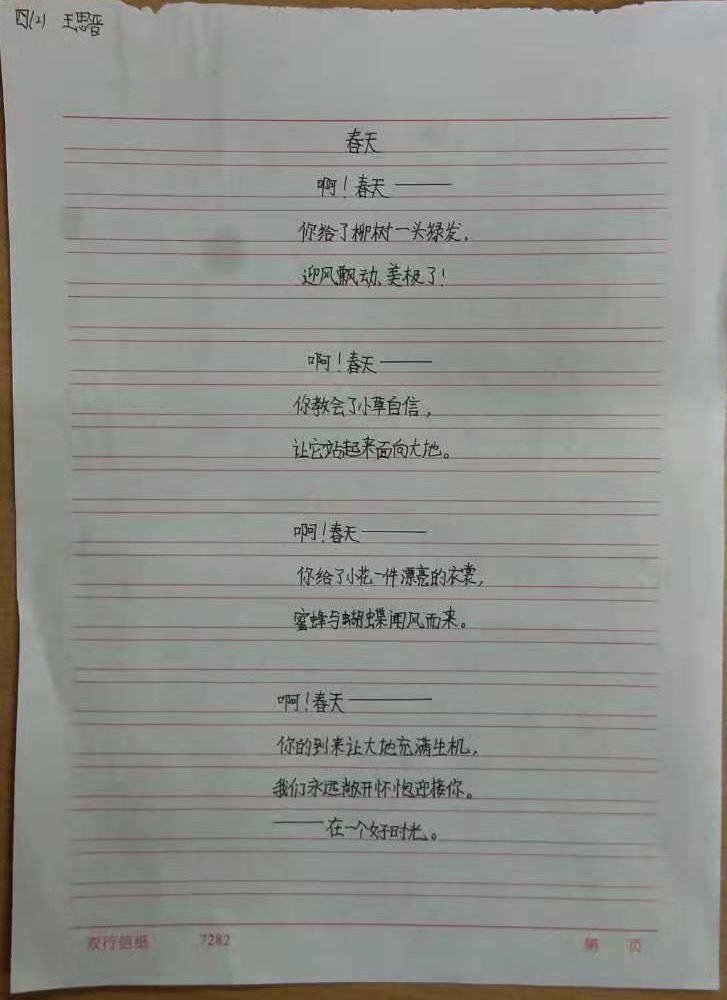 四(2) 王思晋
春天
啊！春天——
你给了柳树一头绿发，
迎风飘动、美极了！
啊！春天——
你教会了小草自信，
让它站起来面向大地。
啊！春天——
你给了小花一件漂亮的衣裳，
蜜蜂与蝴蝶闻风而来。
啊！春天——
你的到来让大地充满生机，
我们永远敞开怀抱迎接你。
——在一个好时光。
双行信纸 7282 第 页